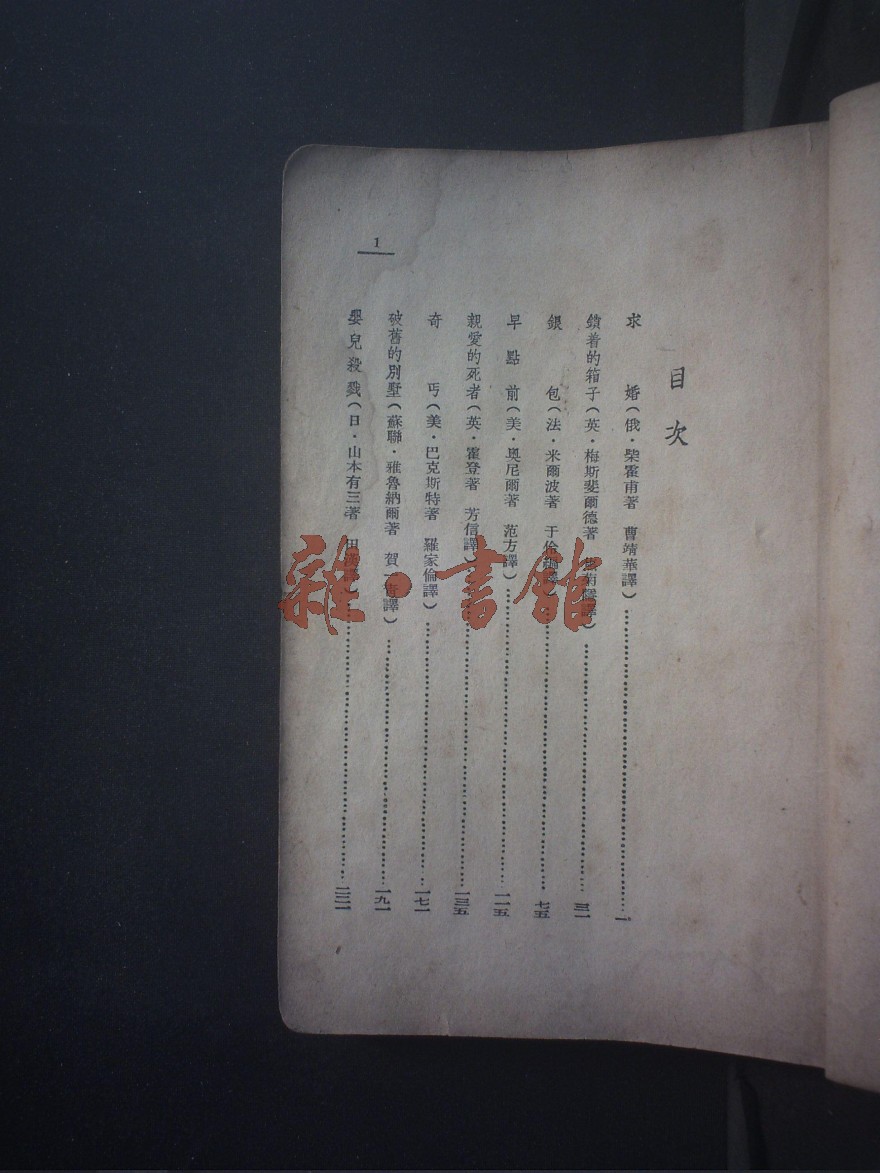 目次
求婚（俄・柴霍甫著　曹靖華譯）……一
鎖着的箱子（英・梅斯斐爾德著　譯）……三一
銀包（法・米爾波著　于伶編譯）……七五
早點前（美・奧尼爾著　范方譯）……一一五
親愛的死者（英・霍登著　芳信譯）……一三五
奇丐（美・巴克斯特著　羅家倫譯）……一七一
破舊的別墅（蘇聯・雅魯納爾著　賀一青譯）……一九一
嬰兒殺戮（日・山本有三著　田漢譯）……二二一
1
雜・書館